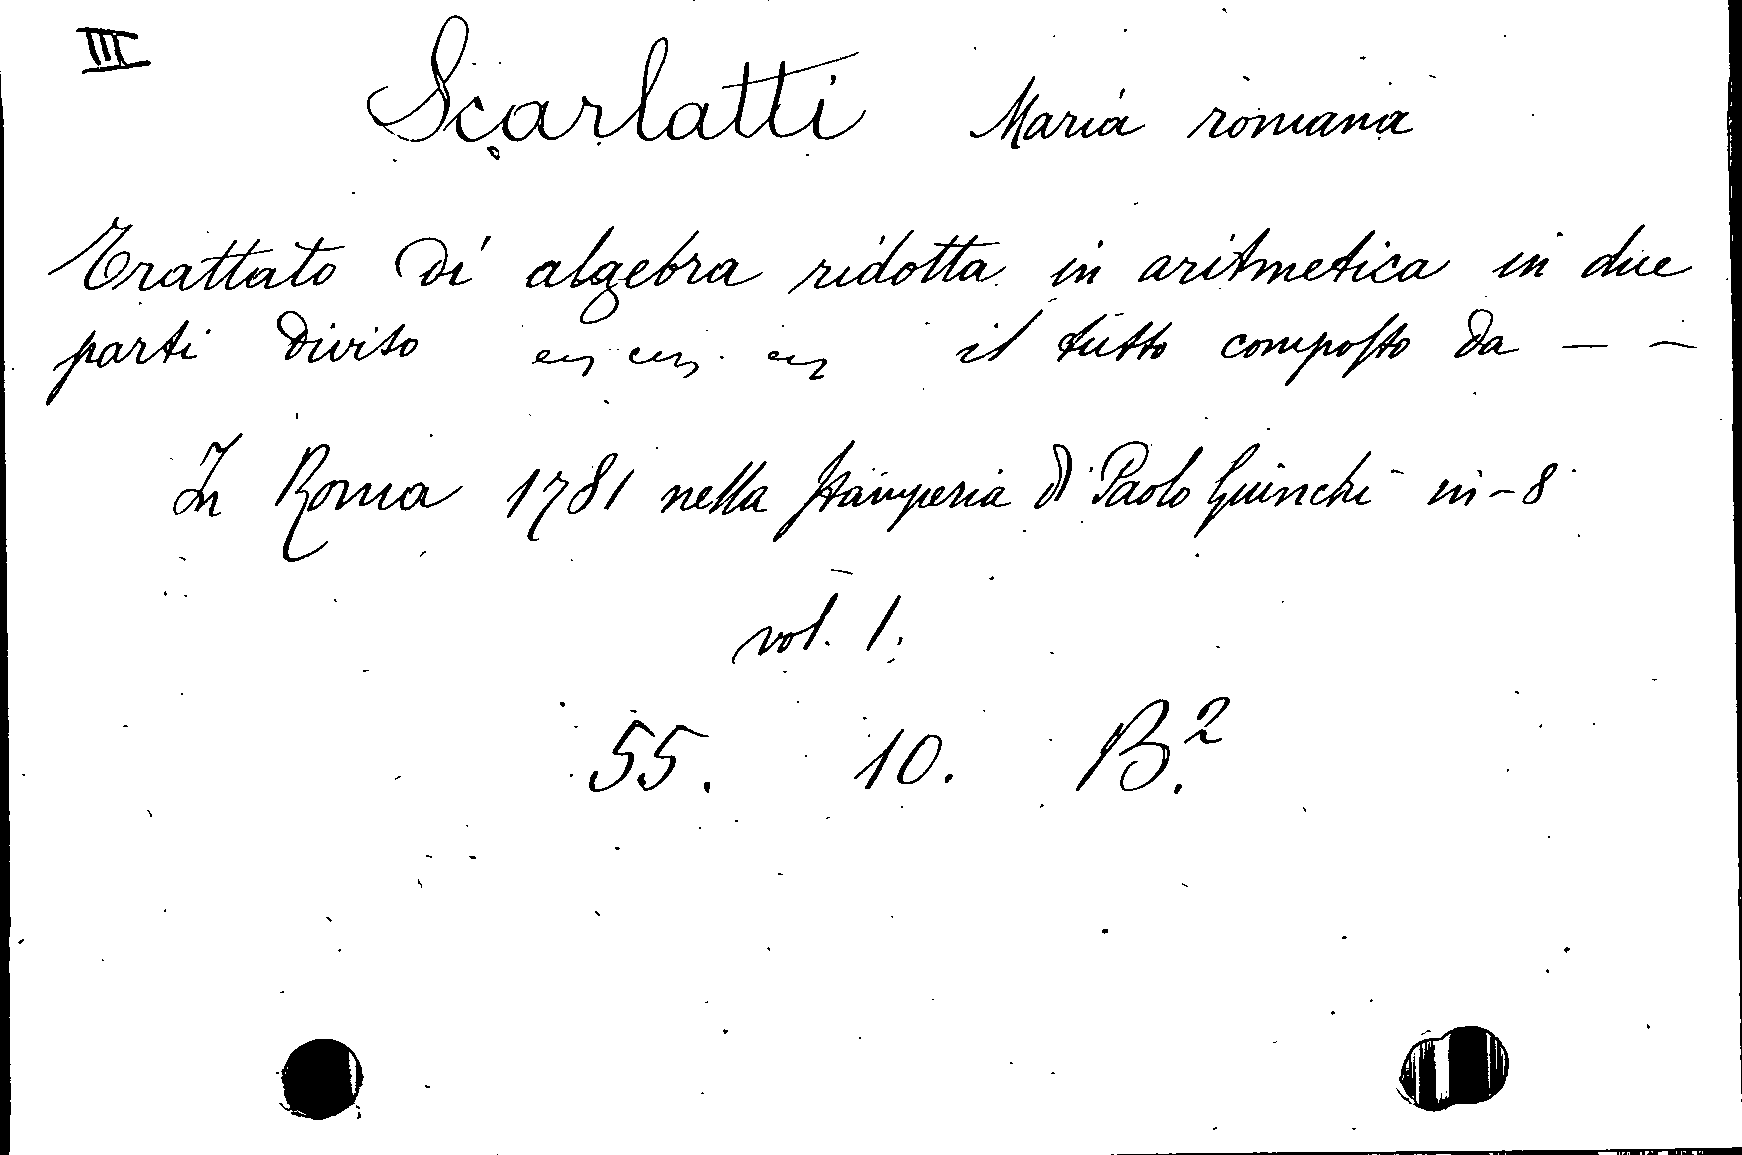 III
Scarlatti Maria romana
Trattato di algebra ridotta in aritmetica in due
parti diviso ~ ~ ~ il tutto composto da – –
In Roma 1781 nella stamperia di Paolo Giunchi in-8
vol. 1.
55. 10. B.²